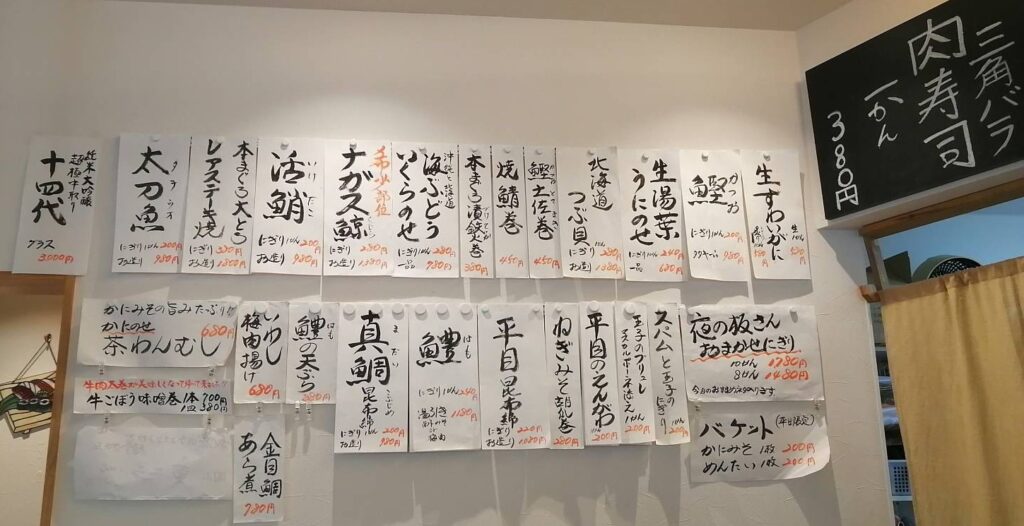 三角バラ
肉寿司
一かん
380円
生ずわいがに
鰹
かつお
にぎり1かん 200円
980円
生湯葉
うにのせ
にぎり1かん 240円
一品 680円
北海道
つぶ貝
にぎり1かん 280円
お造り 1380円
鰹土佐巻
450円
焼鯖巻
450円
本まぐろ漬鉄火巻
380円
沖縄と北海道
海ぶどう
いくらのせ
にぎり1かん 280円
一品 980円
希少部位
ナガス鯨
にぎり1かん 280円
お造り 1380円
活鮹
いけだこ
にぎり1かん 200円
お造り 980円
本まぐろ大とろ
レアステーキ焼
にぎり1かん 380円
お造り 1880円
太刀魚
タチウオ
にぎり1かん 200円
お造り 980円
純米大吟醸
十四代
グラス
3000円
夜の板さん
おまかせにぎり
10かん 1780円
8かん 1480円
バケット(平日限定)
かにみそ 1枚 200円
めんたい 1枚 200円
スパムと玉子の
にぎり
1かん 200円
玉子のブリュレ
1かん 200円
平目のえんがわ
1かん 200円
ねぎみそ胡瓜巻
280円
平目昆布締
にぎり1かん 220円
お造り 1080円
鱧
はも
にぎり1かん 240円
湯引き
1180円
真鯛昆布締
まだい
にぎり1かん 200円
お造り 980円
鱧の天ぷら
はも
いわし
梅肉揚げ
680円
かにみその旨みたっぷり
かにのせ
茶わんむし
680円
牛肉太巻が美味しくなって帰って来ました!!
牛ごぼう味噌巻 1本 700円
1皿 380円
金目鯛
あら煮
780円